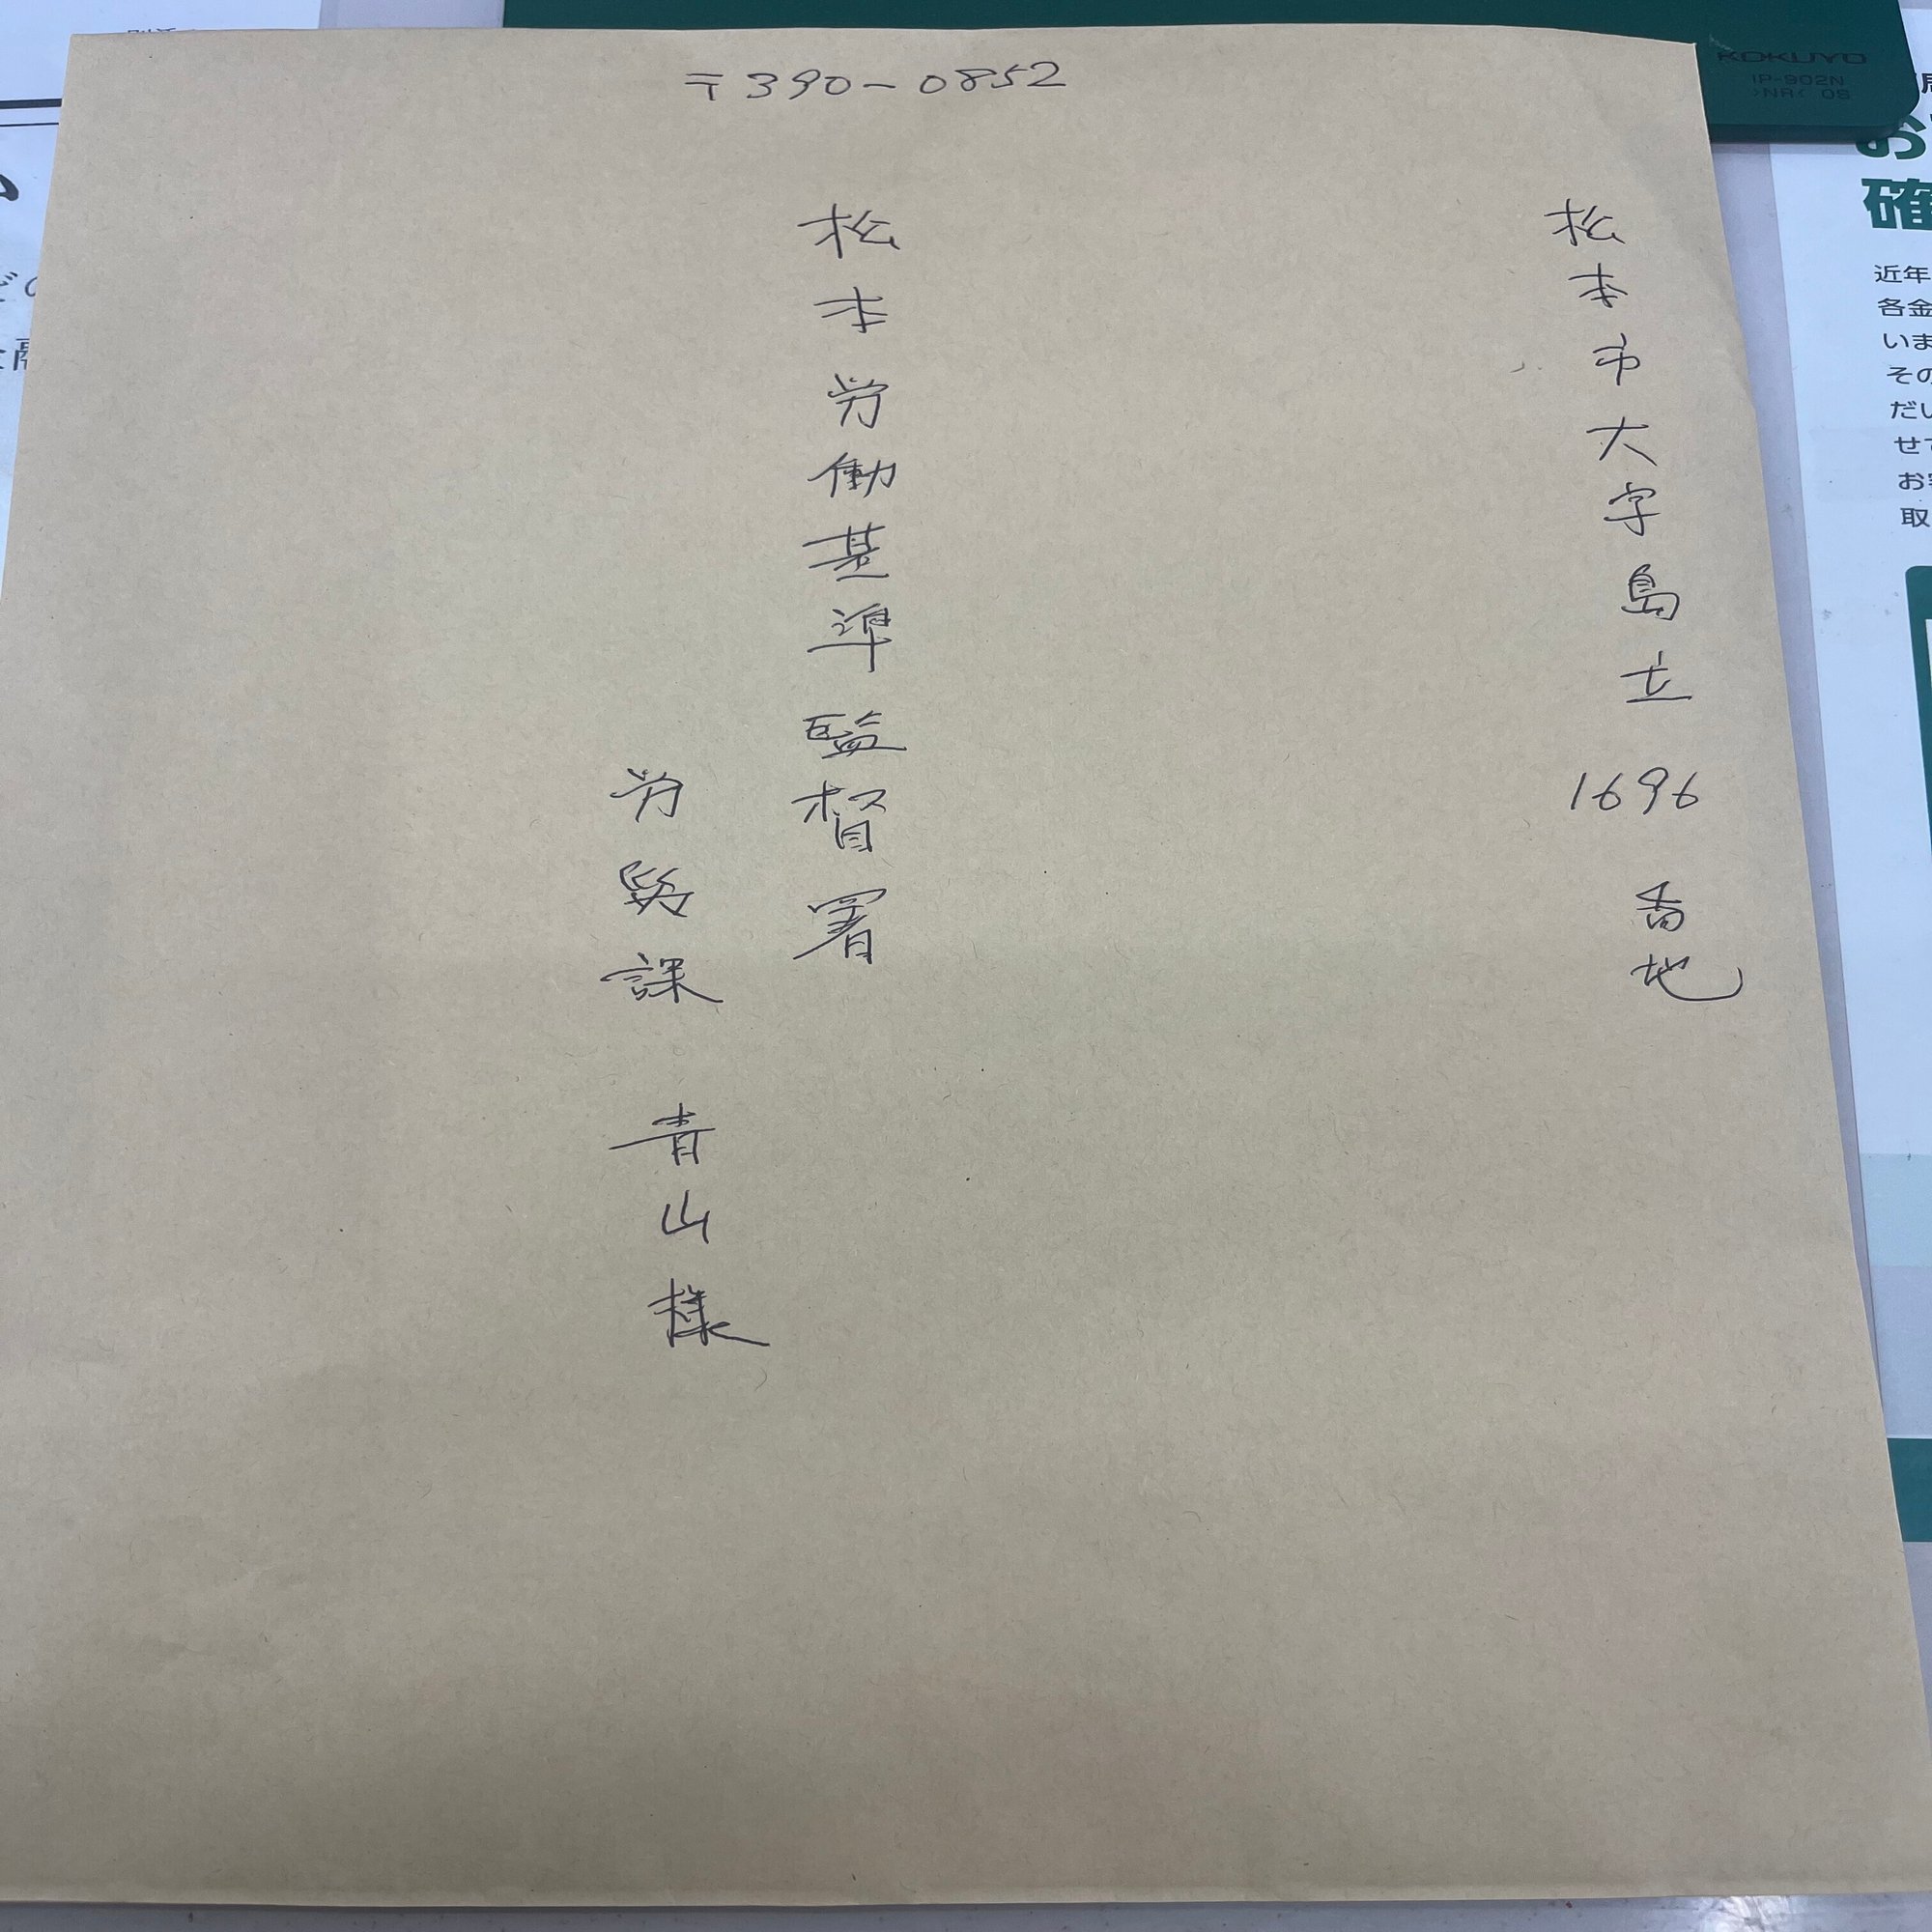 〒390-0852
松本市大字島立1696番地
松本労働基準監督署
労務課 青山様
KOKUYO
IP-902N
確
近年
各金
いま
その
だい
せて
取